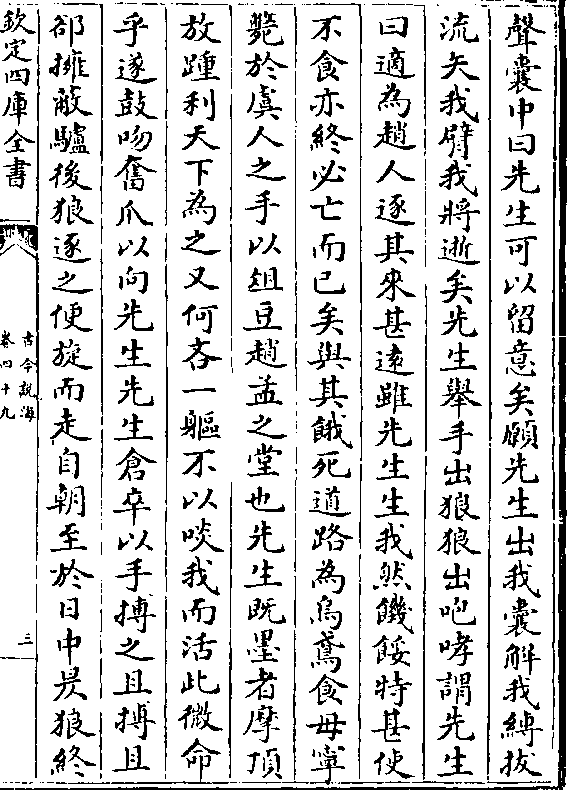 聲囊中曰先生可以留意矣願先生出我囊解我縛拔
流矢我臂我將逝矣先生舉手出狼狼出咆哮謂先生
曰適為趙人逐其來甚逺雖先生生我然饑餒特甚使
不食亦終必亡而已矣與其餓死道路為烏鳶食毋寧
斃於虞人之手以俎豆趙孟之堂也先生既墨者摩頂
放踵利天下為之又何吝一軀不以啖我而活此微命
乎遂鼓吻奮爪以向先生先生倉卒以手搏之且搏且
郤擁蔽驢後狼逐之便旋而走自朝至於日中昃狼終
欽定四庫全書
古今說海
卷四十九
三